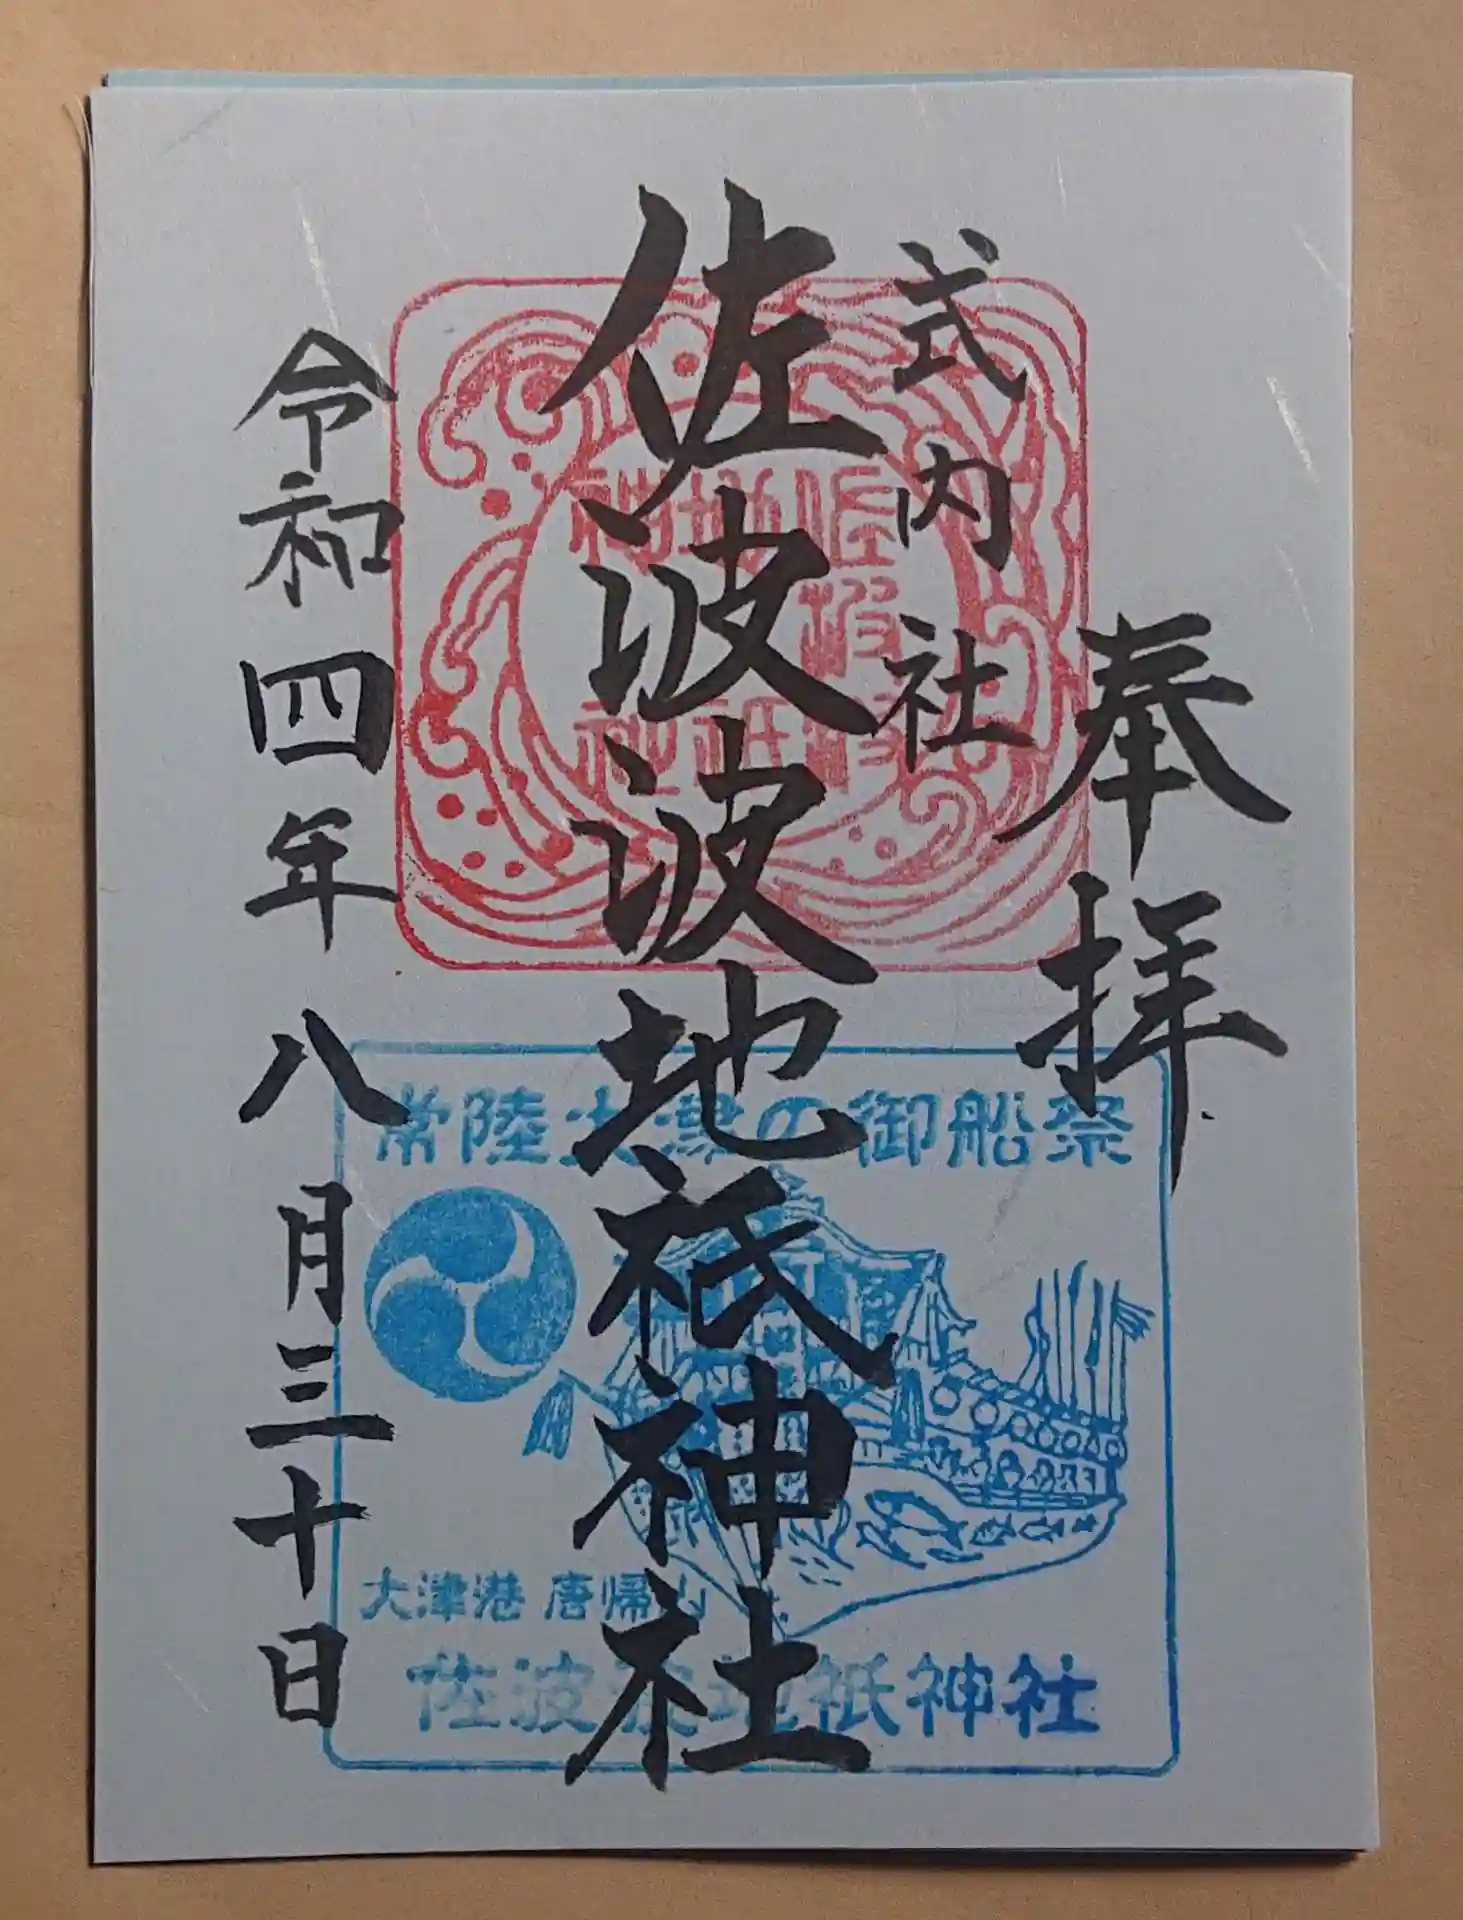 奉拝
式内社
佐波波地祇神社
令和四年八月三十日
佐波波
地祇
神社
常陸大津の御船祭
大津港 唐帰山
佐波波地祇神社